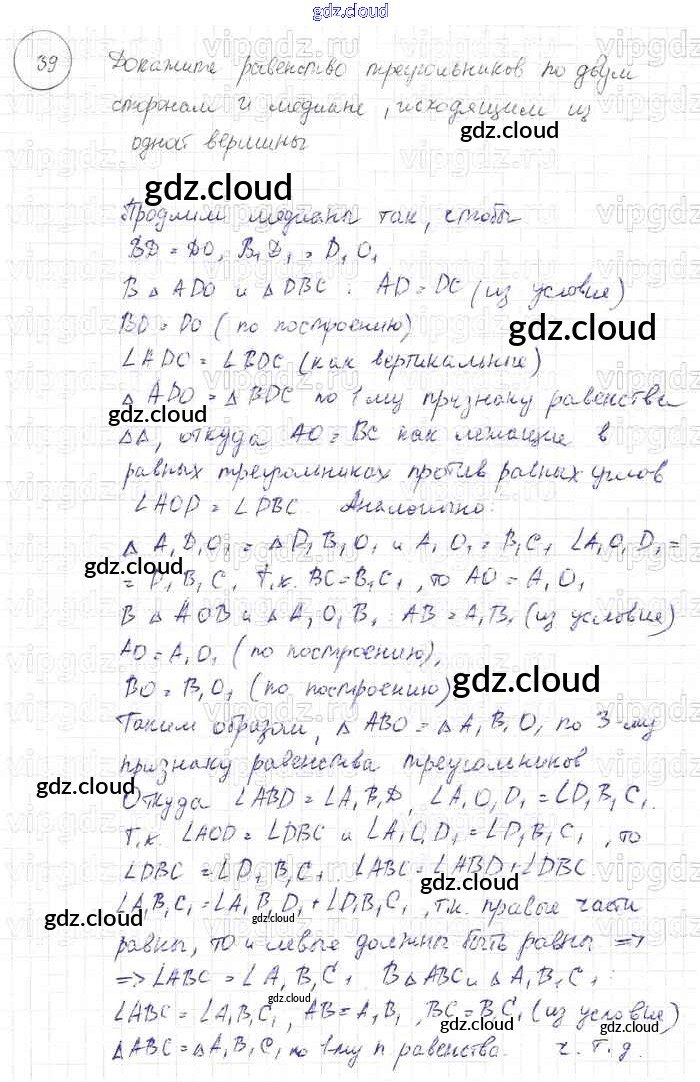 gdz.cloud
39 Докажите равенство треугольников по двум
сторонам и медиане, исходящим из
одной вершины
gdz.cloud
gdz.cloud
Продлим медианы так, чтобы
BD = DO, B₁D₁ = D₁O₁
В △ ADO и △ DBC : AD = DC (из условие)
BD = DO (по построению)
gdz.cloud
∠ADC = ∠BDC (как вертикальные)
△ ADO = △ BDC по 1му признаку равенства
gdz.cloud
△△, откуда AO = BC как лежащие в
равных треугольниках против равных углов
∠AOD = ∠DBC. Аналогично:
△ A₁D₁O₁ = △ D₁B₁O₁ и A₁O₁ = B₁C₁ ∠A₁O₁D₁ =
gdz.cloud
= D₁B₁C₁ Т.к. BC = B₁C₁, то AO = A₁O₁
В △ AOB и △ A₁O₁B₁ : AB = A₁B₁ (из условие)
AO = A₁O₁ (по построению),
BO = B₁O₁ (по построению)
gdz.cloud
Таким образом, △ ABO = △ A₁B₁O₁ по 3-му
признаку равенства треугольников
gdz.cloud
Откуда ∠ABD = ∠A₁B₁D, ∠A₁O₁D₁ = ∠D₁B₁C₁.
Т.к. ∠AOD = ∠DBC и ∠A₁O₁D₁ = ∠D₁B₁C₁, то
∠DBC = ∠D₁B₁C₁ ∠ABC = ∠ABD + ∠DBC
gdz.cloud
∠A₁B₁C₁ = ∠A₁B₁D₁ + ∠D₁B₁C₁, т.к. правые части
gdz.cloud
gdz.cloud
равны, то и левые должны быть равны =>
=> ∠ABC = ∠A₁B₁C₁ В △ABC и △A₁B₁C₁ :
gdz.cloud
∠ABC = ∠A₁B₁C₁, AB = A₁B₁, BC = B₁C₁ (из условие)
gdz.cloud
gdz.cloud
△ABC = △A₁B₁C₁ по 1му п равенства. ч.т.д.
gdz.cloud